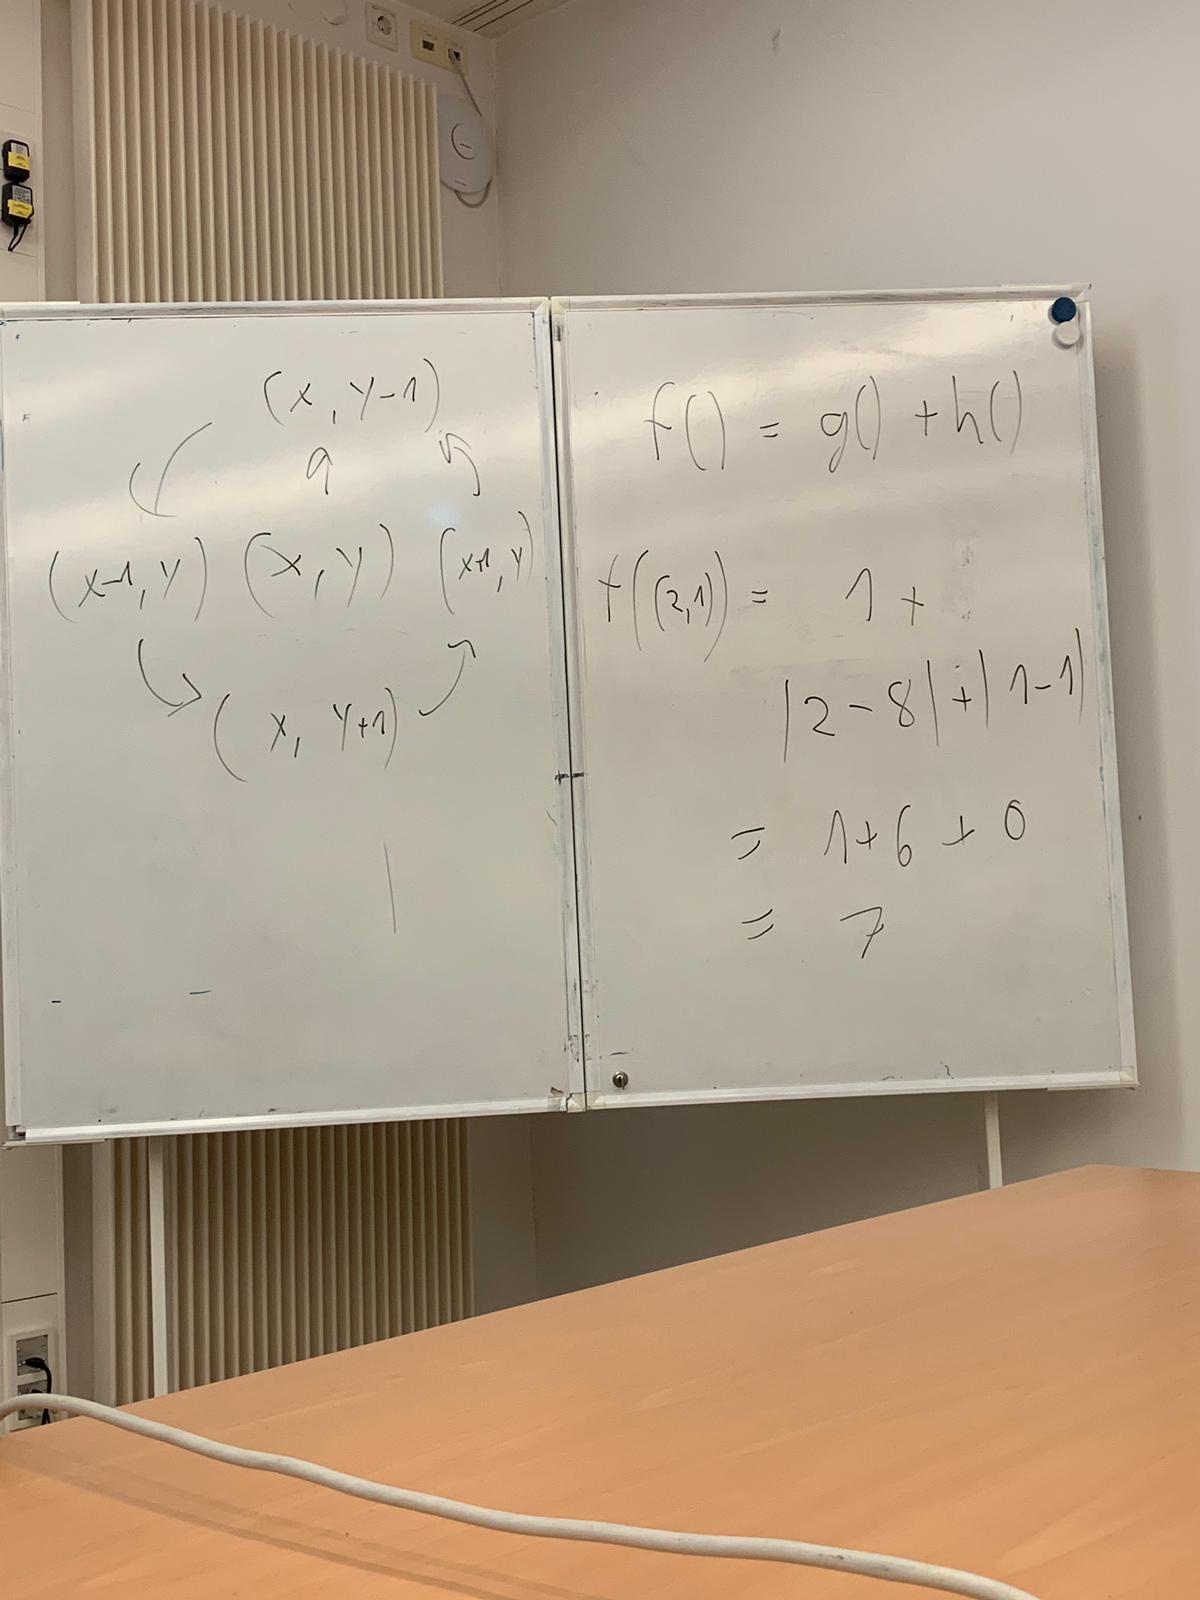 (x, y-1)
(x-1, y) (x, y) (x+1, y)
(x, y+1)
f() = g() + h()
f((2,1)) = 1 +
|2-8|+|1-1|
= 1+6+0
= 7